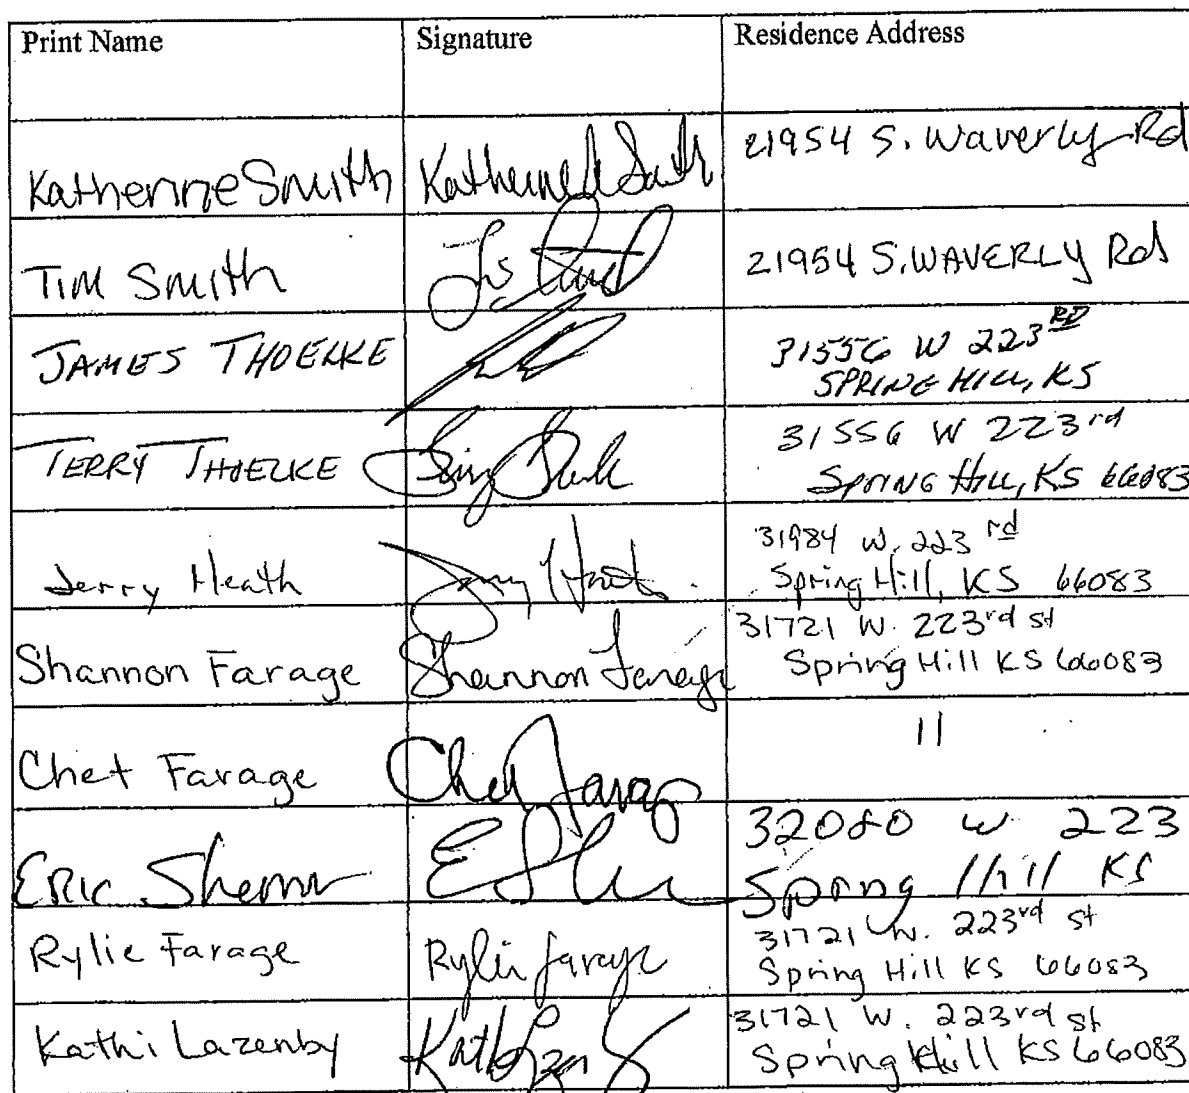 Print Name Signature Residence Address
Katherine Smith Katherine Smith 21954 S. Waverly Rd
Tim Smith 21954 S. WAVERLY Rd
JAMES THOELKE 31556 W 223RD
SPRING HILL, KS
TERRY THOELKE 31556 W 223rd
SPRING HILL, KS 66083
Jerry Heath Jerry Heath 31984 W. 223rd
Spring Hill, KS 66083
Shannon Farage Shannon Farage 31721 W. 223rd st
Spring Hill KS 66083
Chet Farage Chet Farage 11
ERIC 32080 W 223
Spring Hill KS
Rylie Farage Rylie Farage 31721 W. 223rd st
Spring Hill KS 66083
Kathi Lazenby 31721 W. 223rd st
Spring Hill KS 66083